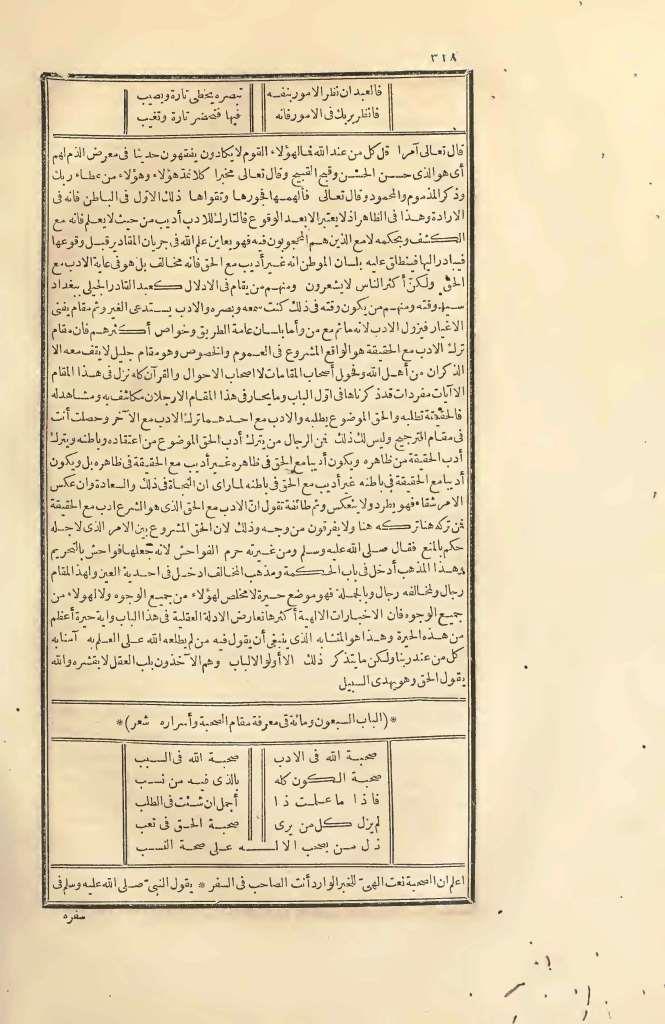 ٣١٨
فالعبد ان نظر الامور بنفسه تبصره يخطى تارة ويصيب
فانظر بربك فى الامور فانه فيها فتحضر تارة وتغيب
قال تعالى آمرا قل كل من عند الله فمال هؤلاء القوم لا يكادون يفقهون حديثا فى معرض الذم لهم
أى هو الذى حسن الحسن وقبح القبيح وقال تعالى مخبرا كلا نمد هؤلاء وهؤلاء من عطاء ربك
وذكر المذموم والمحمود وقال تعالى فألهمها فجورها وتقواها ذلك الاول فى الباطن فانه فى
الارادة وهذا فى الظاهر اذ لا يعتبر الا بعد الوقوع فالتارك للادب أديب من حيث لا يعلم فانه مع
الكشف وبحكمه لا مع الذين هم المحجوبون فيه فهو يعاين علم الله فى جريان المقادير قبل وقوعها
فيبادر اليها فينطلق عليه بلسان الموطن انه غير أديب مع الحق فانه مخالف بل هو فى غاية الادب مع
الحق ولكن أكثر الناس لا يشعرون ومنهم من يقام فى الادلال كعبد القادر الجيلى ببغداد
سيد وقته ومنهم من يكون وقته فى ذلك كنت سمعه وبصره والادب يستدعى الغير وثم مقام يفنى
الاغيار فيزول الادب لانه ما ثم مع من وأما بلسان عامة الطريق وخواص أكثرهم فان مقام
ترك الادب مع الحقيقة هو الواقع المشروع فى العموم والخصوص وهو مقام جليل لا يقف معه الا
الذكران من أهل الله وفحول أصحاب المقامات لا اصحاب الاحوال والقرآن كله نزل فى هذا المقام
الا آيات مفردات قد ذكرناها فى اول الباب وما يحار فى هذا المقام الا رجلان مكاشف به ومشاهد له
فالحقيقة تطلبه والحق الموضوع يطلبه والادب مع احدهما ترك الادب مع الآخر وحصلت أنت
فى مقام الترجيح وليس لك ذلك فمن الرجال من يترك أدب الحق الموضوع من اعتقاده وباطنه ويترك
أدب الحقيقة من ظاهره ويكون أديبا مع الحق فى ظاهره غير أديب مع الحقيقة فى ظاهره بل ويكون
أديبا مع الحقيقة فى باطنه غير أديب مع الحق فى باطنه لما راى ان النجاة فى ذلك والسعادة وان عكس
الامر شقاء فهو يطرد ولا ينعكس وثم طائفة تقول ان الادب مع الحق الذى هو الشرع ادب مع الحقيقة
فمن تركه هنا تركه هنا ولا يفرقون من وجه وذلك لان الحق المشروع بين الامر الذى لاجله
حكم بالمنع فقال صلى الله عليه وسلم ومن غيرته حرم الفواحش لانه جعلها فواحش بالتحريم
وهذا المذهب أدخل فى باب الحكمة ومذهب المخالف ادخل فى احدية العين ولهذا المقام
رجال ولمخالفه رجال وبالجملة فهو موضع حيرة لا مخلص لهؤلاء من جميع الوجوه ولا لهؤلاء من
جميع الوجوه فان الاخبارات الالهية أكثرها تعارض الادلة العقلية فى هذا الباب واية حيرة أعظم
من هذه الحيرة وهذا هو المتشابه الذى ينبغى أن يقول فيه من لم يطلعه الله على العلم به آمنا به
كل من عند ربنا ولكن ما يتذكر ذلك الا أولو الالباب وهم الآخذون بلب العقل لا بقشره والله
يقول الحق وهو يهدى السبيل
*(الباب السبعون ومائة فى معرفة مقام الصحبة وأسراره شعر)*
صحبة الله فى الادب صحبة الله فى السبب
صحبة الكون كله بالذى فيه من نسب
فاذا ما علمت ذا أجمل ان شئت فى الطلب
لم يزل كل من يرى صحبة الحق فى تعب
ذل من يصحب الاله على صحة النسب
اعلم ان الصحبة نعت الهى للخبر الوارد أنت الصاحب فى السفر * يقول النبى صلى الله عليه وسلم فى
سفره